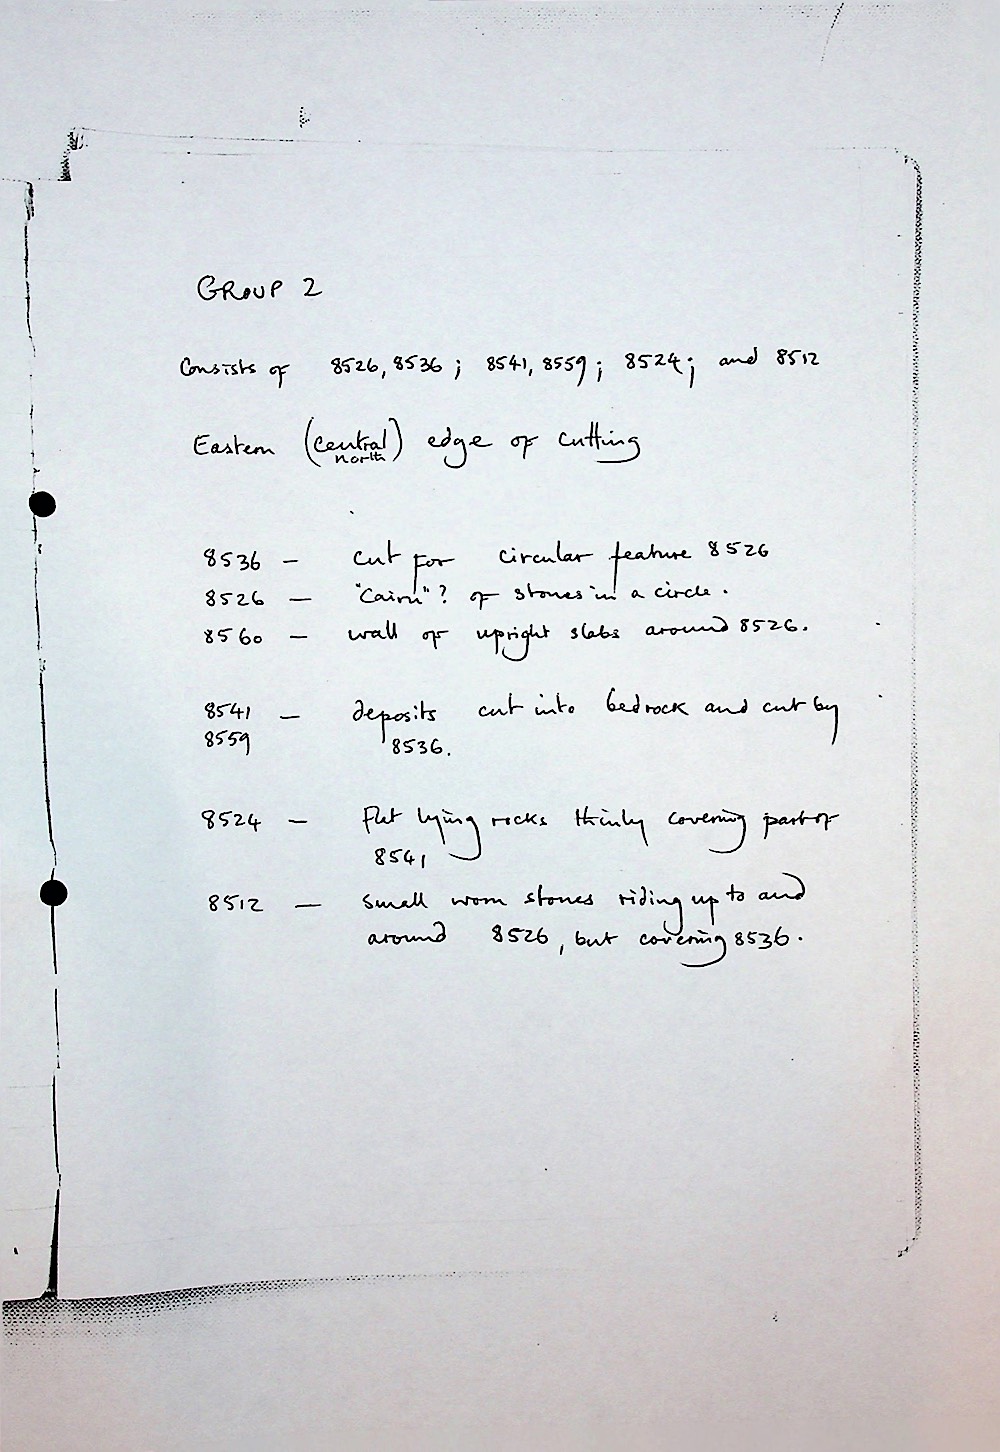 GROUP 2
Consists of 8526, 8536 ; 8541, 8559 ; 8524 ; and 8512
Eastern (central) edge of cutting
north
8536 – cut for circular feature 8526
8526 – "Cairn"? of stones in a circle.
8560 – wall of upright slabs around 8526.
8541 – deposits cut into bedrock and cut by
8559 8536.
8524 – flat lying rocks thinly covering part of
8541
8512 – small worn stones riding up to and
around 8526, but covering 8536.